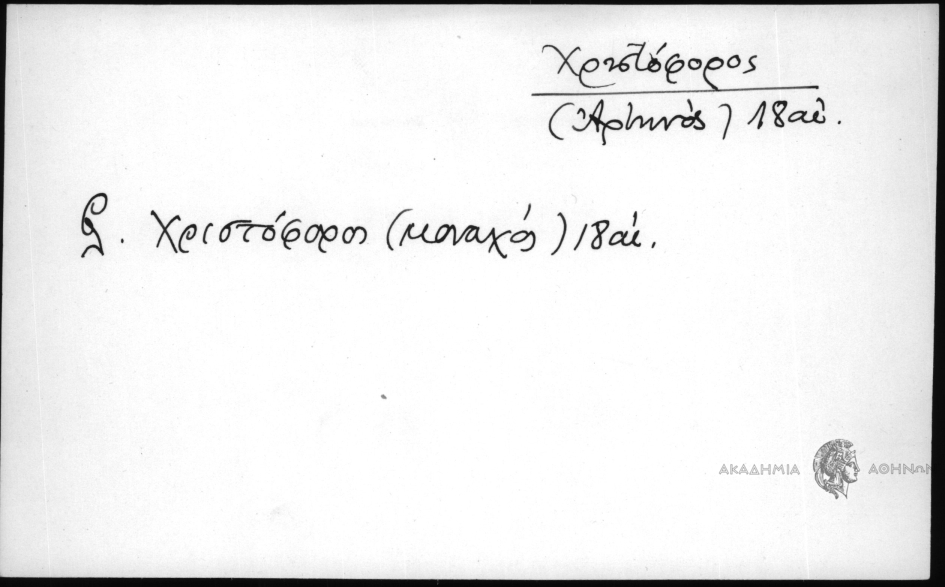 Χριστόφορος
(Ἀρτινός) 18 αἰ.
β. Χριστόφορος (μοναχός) 18 αἰ.
ΑΚΑΔΗΜΙΑ ΑΘΗΝΩΝ